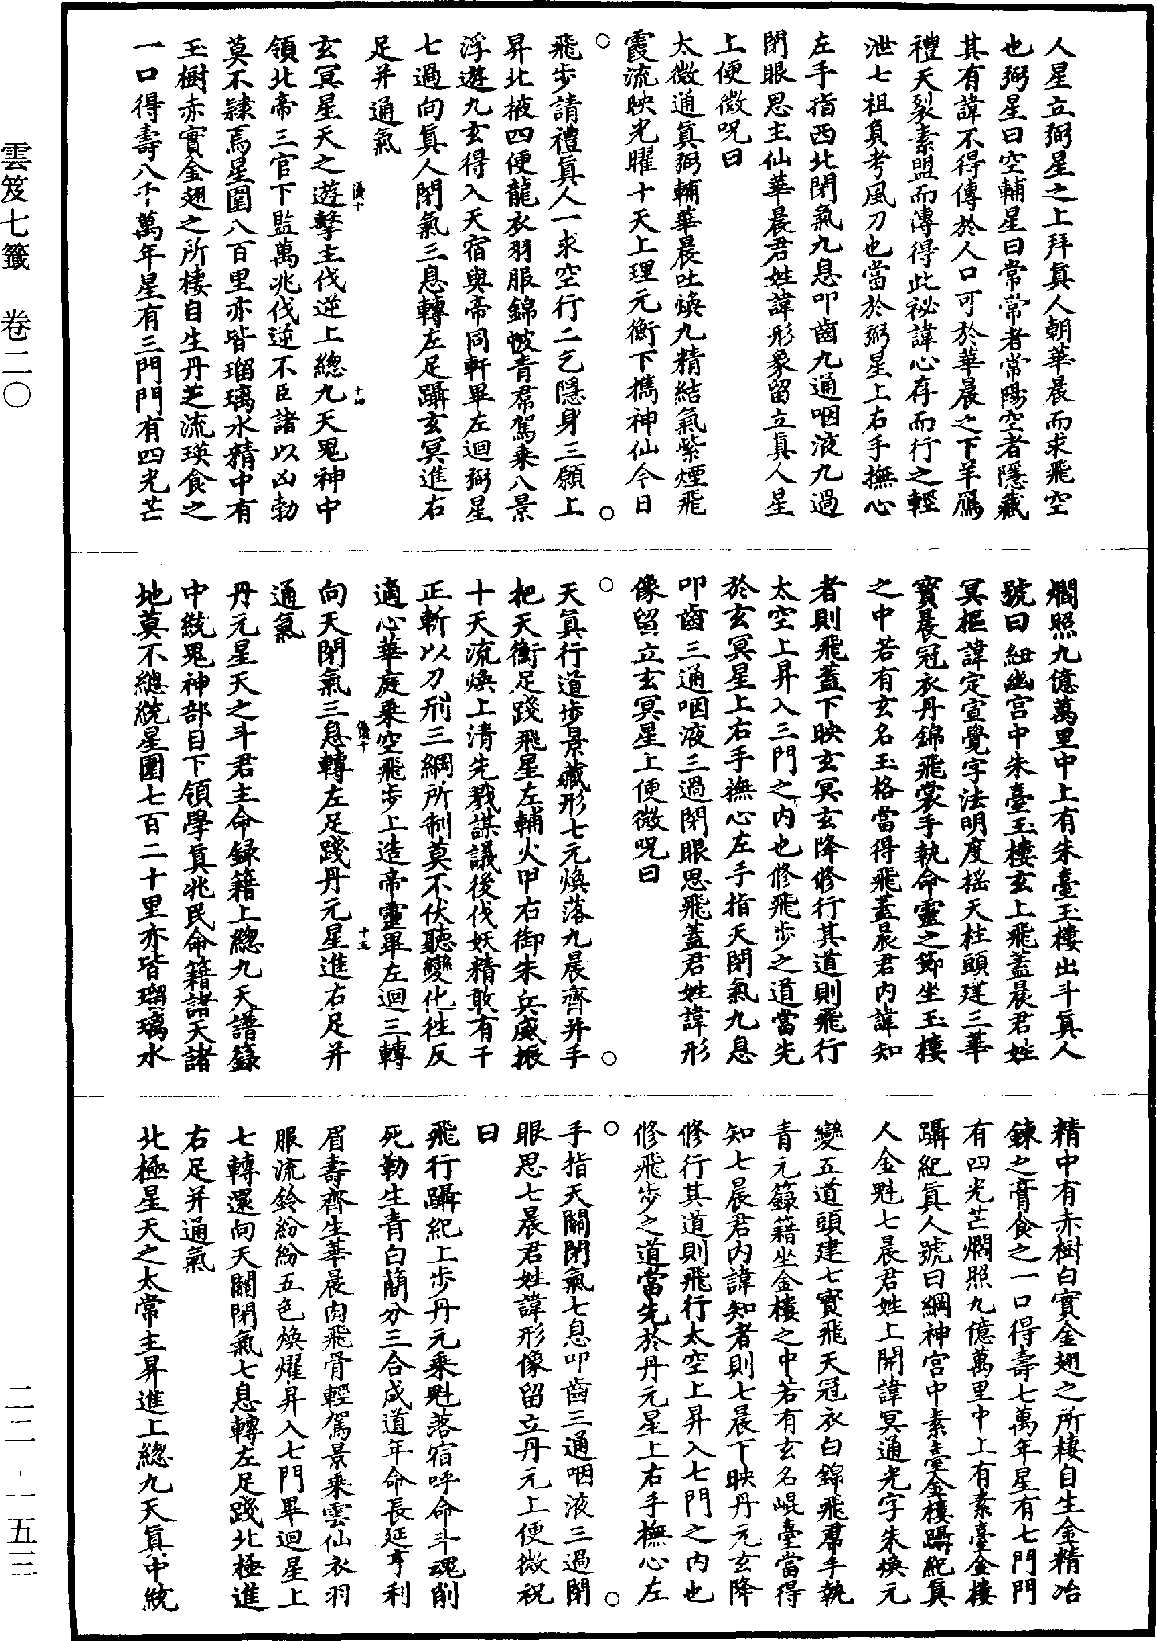 雲笈七籤　卷二〇
人星立弼星之上拜真人朝華晨而求飛空
也弼星曰空輔星曰常常者常陽空者隱藏
其有諱不得傳於人口可於華晨之下羊鴈
禮天裂素盟而傳得此祕諱心存而行之輕
泄七祖負考風刀也當於弼星上右手撫心
左手指西北閉氣九息叩齒九通咽液九過
閉眼思主仙華晨君姓諱形象留立真人星
上便微呪曰
太微通真弼輔華晨吐煥九精結氣紫煙飛
霞流映光曜十天上理元衡下攜神仙今日
飛步請禮真人一求空行二乞隱身三願上
昇北掖四便龍衣羽服錦帔青帬駕乘八景
浮遊九玄得入天宿與帝同軒畢左迴弼星
七過向真人閉氣三息轉左足躡玄冥進右
足并通氣
玄冥星天之遊擊主伐逆上總九天鬼神中
領北帝三官下監萬兆伐逆不臣諸以凶勃
莫不隸焉星圍八百里亦皆瑠璃水精中有
玉樹赤實金翅之所棲自生丹芝流瑛食之
一口得壽八千萬年星有三門門有四光芒
燗照九億萬里中上有朱臺玉樓出斗真人
號曰紐幽宫中朱臺玉樓玄上飛蓋晨君姓
冥樞諱定宣覺字法明度榣天柱頭建三華
寶晨冠衣丹錦飛裳手執命靈之節坐玉樓
之中若有玄名玉格當得飛蓋晨君内諱知
者則飛蓋下映玄冥玄降修行其道則飛行
太空上昇入三門之内也修飛步之道當先
於玄冥星上右手撫心左手指天閉氣九息
叩齒三通咽液三過閉眼思飛蓋君姓諱形
像留立玄冥星上便微呪曰
天真行道步景藏形七元煥落九晨齊并手
把天衡足踐飛星左輔火甲右御朱兵威振
十天流煥上清先戮謀議後伐妖精敢有干
正斬以刀刑三綱所制莫不伏聽變化往反
適心華庭乘空飛步上造帝靈畢左迴三轉
向天閉氣三息轉左足踐丹元星進右足并
通氣
丹元星天之斗君主命録籍上總九天譜籙
中統鬼神部目下領學真兆民命籍諸天諸
地莫不總統星圍七百二十里亦皆瑠璃水
精中有赤樹白實金翅之所棲自生金精冶
鍊之膏食之一口得壽七萬年星有七門門
有四光芒燗照九億萬里中上有素臺金樓
躡紀真人號曰綱神宫中素臺金樓躡紀真
人金魁七晨君姓上開諱冥通光字朱煥元
變五道頭建七寶飛天冠衣白錦飛帬手執
青元籙籍坐金樓之中若有玄名崐臺當得
知七晨君内諱知者則七晨下映丹元玄降
修行其道則飛行太空上昇入七門之内也
修飛步之道當先於丹元星上右手撫心左
手指天關閉氣七息叩齒三通咽液三過閉
眼思七晨君姓諱形像留立丹元上便微祝
曰
飛行躡紀上步丹元乘魁落宿呼命斗魂削
死勒生青白蕑分三合成道年命長延亨利
眉壽齊生華晨肉飛骨輕駕景乘雲仙衣羽
服流鈴紛紛五色煥燿昇入七門畢迴星上
七轉還向天關閉氣七息轉左足踐北極進
右足并通氣
北極星天之太常主昇進上總九天真中統
二二·一五三